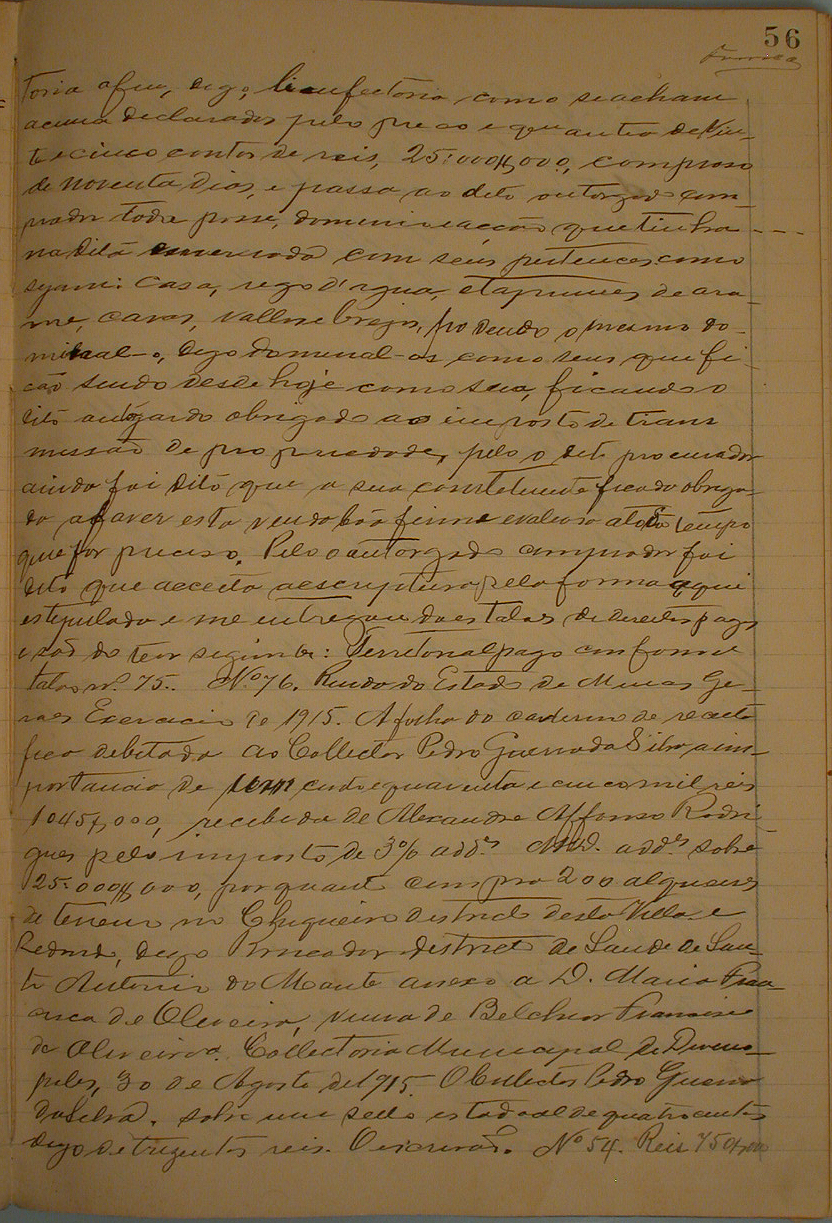 56
toria afim, digo, bemfeitoria como se acham
acima declarados pelo preço e quantia de Vin-
te e cinco contos de reis, 25:000$000, com praso
de noventa dias, e passa ao dito outorgado com-
prador toda posse, dominio e acção que tinha
na dita com seus pertences como
sejam: Casa, rego d'agua, e tapumes de ara-
me, cavas, vallos e brejos, podendo o mesmo do-
minal-o, digo dominal-os como seus que fi-
cão sendo desde hoje como seu, ficando o
dito outorgado obrigado ao imposto de trans
missão de propriedade, pelo o dito procurador
ainda foi dito que a sua constetuente fica do obriga-
da a fazer esta venda bôa firme e valiosa a todo tempo
que for preciso. Pelo o outorgado comprador foi
dito que acceita a escriptura pela forma aqui
estipulada e me entregou dois talões de direitos pagos
e são do teor seguinte: Territorial pago conforme
talão nº. 75. Nº 76. Renda do Estado de Minas Ge-
raes Exercicio de 1915. A folha do caderno de receita
fica debitado ao Collector Pedro Guerra da Silva a im-
portancia de um conto e quarenta e cinco mil reis
1045$000, recebida de Alexandre Affonso Rodri-
gues pelo imposto de 3% add.s add.s sobre
25:000$000, porquanto comprou 200 alqueires
de terras no Chiqueiro districto desta Villa e
Redond, digo Roncador districto de Saude de San-
to Antonio do Monte anexo a D. Maria Fran-
cisca de Oliveira, viuva de Belchior Francisco
de Oliveira. Collectoria Municipal de Divino-
polis, 30 de Agosto de 1915. O Collector Pedro Guerra
da Silva. sobre um sello estadoal de quatrocentos
digo de trezentos reis. O escrivão. Nº 54. Reis 750$000